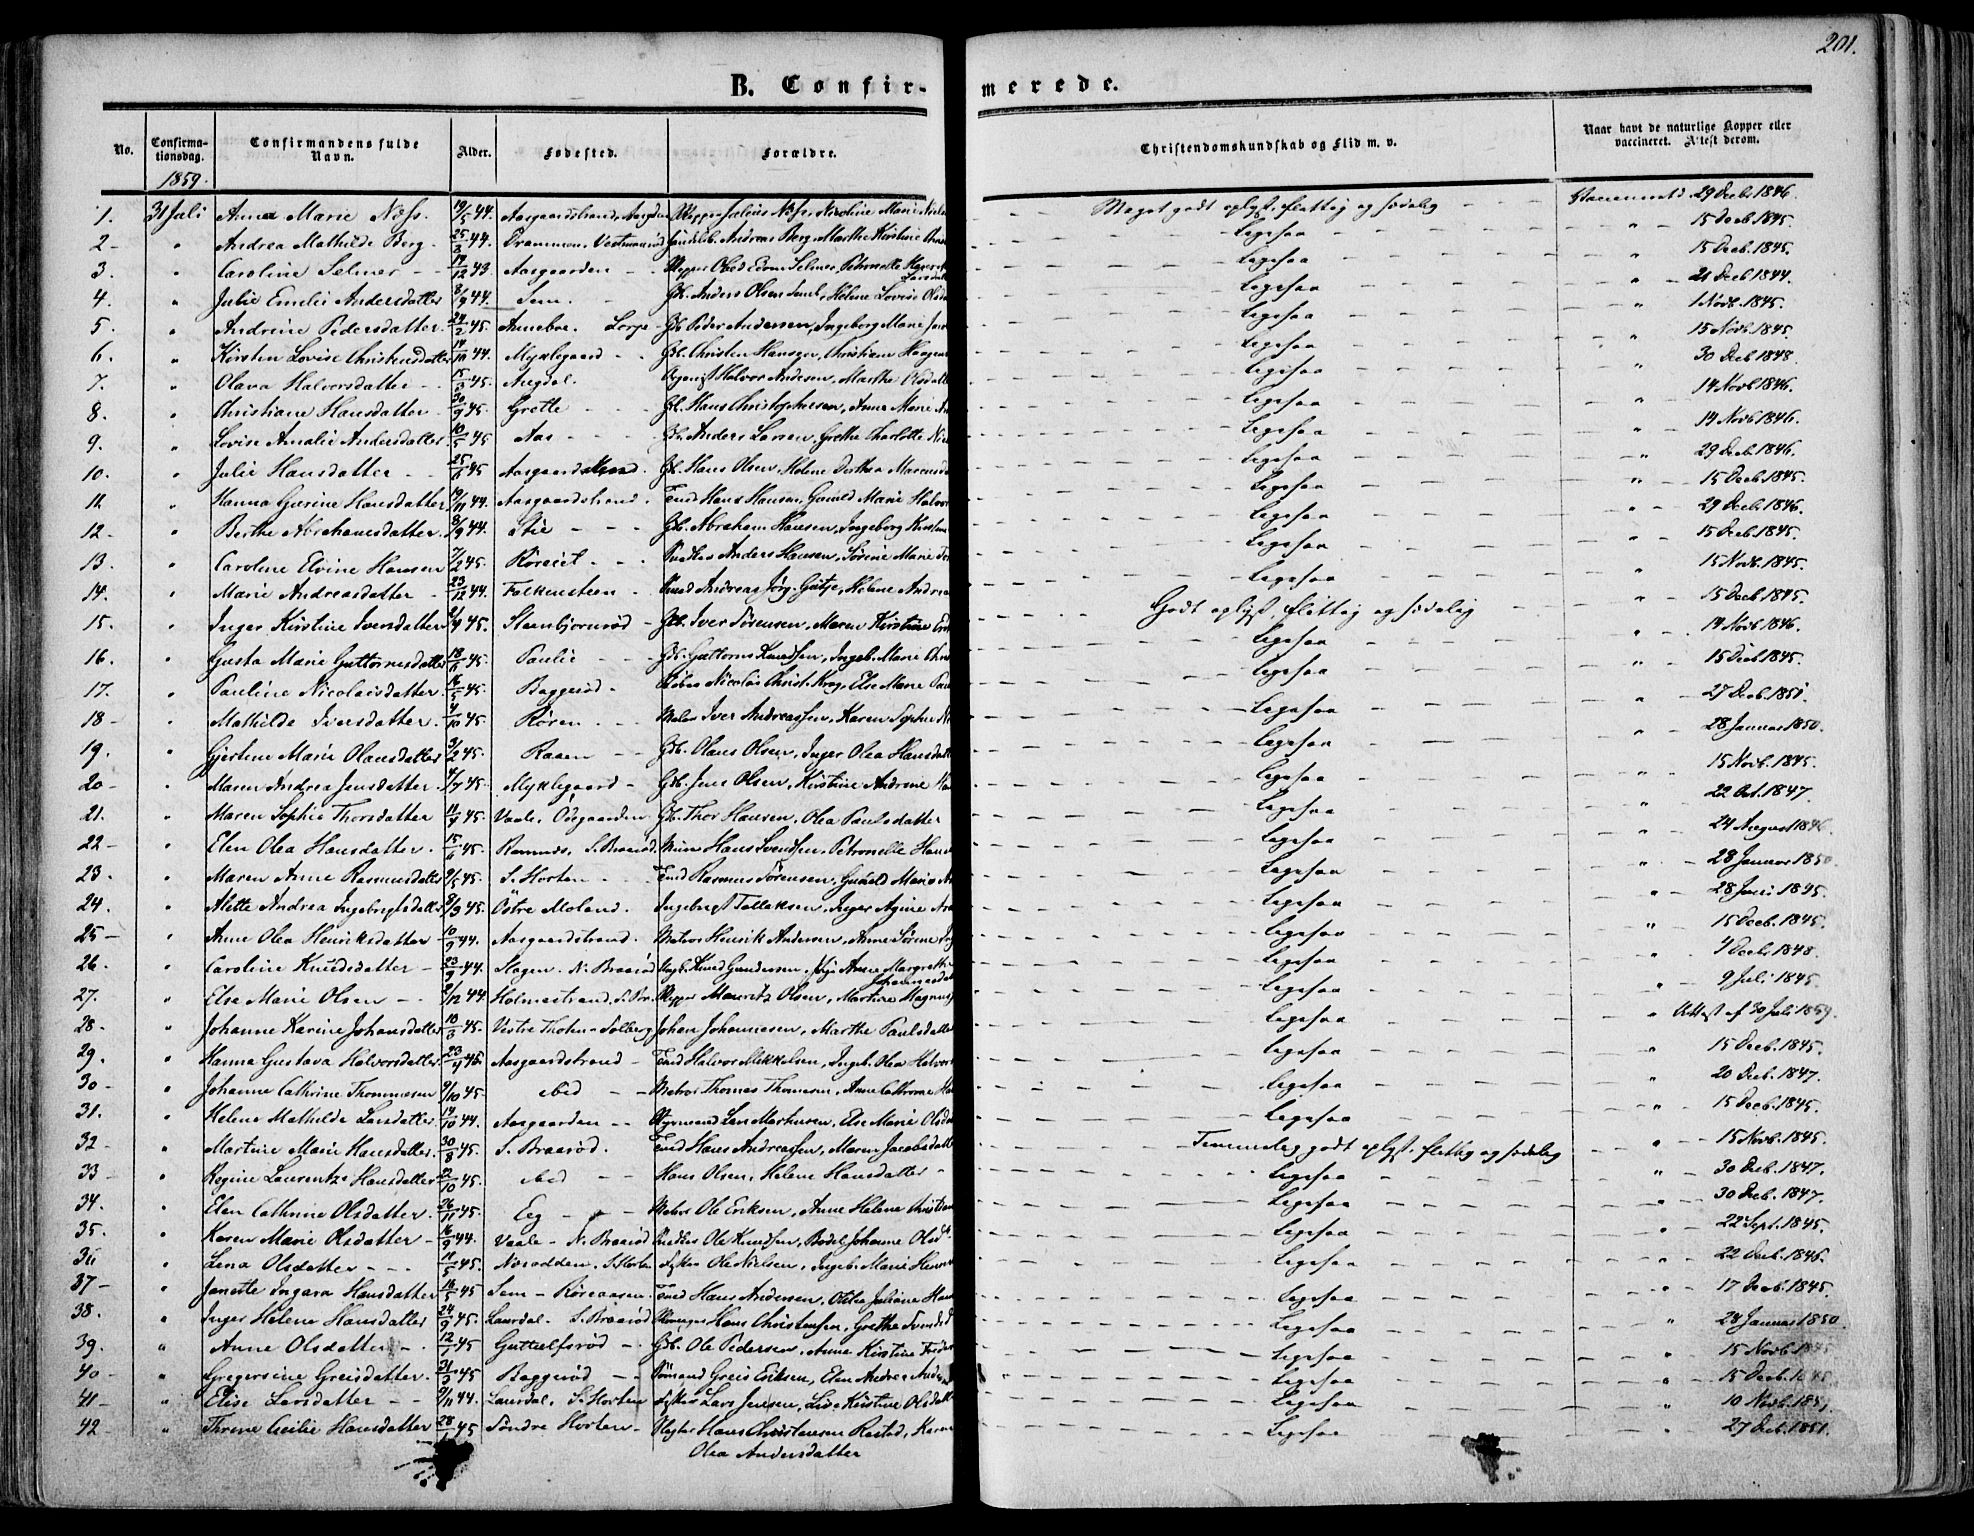 201.
B. Confirmerede.
No. Confirmationsdag. Confirmandens fulde Navn. Alder. Fødested. Forældre. Christendomskundskab og Flid m. v. Naar havt de naturlige Kopper eller vaccineret. Attest derom.
1859.
1. 31 Juli Anna Marie Næss. 19/5 44. Aasgaardstrand, Skipper Julius Næss, Nicoline Marie Meget godt oplyst, flittig og sædelig 29 Decb. 1846.
2 - " Andrea Mathilde Berg 25/3 44. Drammen, Andreas Berg, Marthe Kirstine Ligesaa " 15 Decb. 1845.
3. " Caroline Selmer 12 43. Aasgaarden Skipper Selmer, Petronelle Ligesaa " 15 Decb. 1845.
4. " Julie Emilie Andersdatter 8/9 44. Sem. Gb. Anders Olsen Helene Lovise Ligesaa " 21 Decb 1844.
5. " Andrine Pedersdatter 24/2 45. Anneboe. Gb. Peder Andersen, Ingeborg Marie Ligesaa " 1 Novb. 1845.
6. " Kirsten Lovise Christensdatter 14/10 44. Myklegaard Gb. Christen Hansen, Christiane Ligesaa " 15 Novb. 1845.
7. " Olava Halvorsdatter 15/3 45. Augdal. Halvor Andersen, Marthe Olsdatter Ligesaa " 30 Decb. 1848.
8. " Christiane Hansdatter 30/9 45. Grette Gb. Hans Christophersen, Anne Marie Ligesaa " 14 Novb 1846.
9. " Lovise Amalie Andersdatter 10/5 45 Aas Gb. Anders Larsen, Grethe Charlotte Ligesaa " 14 Novb 1846.
10. " Julie Hansdatter 25/6 45 Gb. Hans Olsen, Helene Dorthea Ligesaa " 29 Decb. 1846.
11. " Hanna Hansdatter 19/11 44. Aasgaardstrand. Hans Hansen, Gunild Marie Ligesaa " 15 Decb. 1845.
12. " Berthe Abrahamsdatter. 8/9 44. Stie Gb. Abraham Hansen, Ingeborg Kirstine Ligesaa " 29 Decb. 1846.
13. " Caroline Elvine Hansen 7/2 45. Røreiet. Anders Hansen, Sørine Marie Ligesaa " 15 Decb. 1845.
14. " Marie Andreasdatter 23/12 44. Falkensteen Andreas Jørg. Gutje, Helene Andrea Ligesaa " 15 Novb. 1845.
15. " Inger Kirstine Iversdatter 45. Steenbjørnrød Gb. Iver Sørensen, Maren Kirstine Godt oplyst, flittig og sædelig " 15 Decb. 1845.
16. " Gusta Marie Guttormsdatter 18/6 45. Paulie Gb. Guttorm Knudsen, Ingeb. Marie Ligesaa " 14 Novb. 1846.
17. " Pauline Nicolaisdatter. 16/5 45. Baggerød Nicolai Christ. Krog, Else Marie Ligesaa " 15 Decb. 1845.
18 - " Mathilde Iversdatter 4/10 45. Røren Matros Iver Andreassen, Karen Sophie Ligesaa " 27 Decb. 1851.
19. " Gjertine Marie Olausdatter 3/2 45. Raaen Gb. Olaus Olsen, Inger Olea Hansdatter Ligesaa " 28 Januar 1850.
20 - " Maren Andrea Jensdatter 4/7 45. Myklegaard Gb. Jens Olsen, Kirstine Andrine Ligesaa " 15 Novb. 1845.
21. " Maren Sophie Thorsdatter 11/4 45. Vaale, Odsgaarden Gb. Thor Hansen, Olea Paulsdatter Ligesaa " 22 Oct. 1847.
22 - " Elen Olea Hansdatter. 15/6 45. Ramnes, S. Braarød Hans Svendsen, Petronelle Ligesaa " 24 August 1846.
23. " Maren Anne Rasmusdatter 9/5 45. S. Horten Tmd Rasmus Sørensen, Gunild Marie Ligesaa " 28 Januar 1850.
24. " Alette Andrea Ingebrigtsdatter 8/3 45. Östre Moland. Ingebrigt Tellaksen, Inger Ligesaa " 28 Juni 1845.
25 - " Anne Olea Henriksdatter 10/9 44. Aasgaardstrand. Matros Henrik Andersen, Anne Sørine Ligesaa " 15 Decb. 1845.
26. " Caroline Knudsdatter 23/9 44. Slagen. N. Braarød Knud Gundersen, Anne Margrethe Ligesaa " 4 Decb. 1848.
27. " Else Marie Olsen 2/12 44. Holmestrand, Skipper Mauritz Olsen, Martine Ligesaa " 9 Juli 1845.
28. " Johanne Karine Johansdatter 10/3 45. Vestre Solberg Johan Johannesen, Marthe Paulsdatter Ligesaa " Attest af 30 Juli 1859.
29. " Hanna Gustava Halvorsdatter 23/4 45. Aasgaardstrand Tmd Halvor Mikkelsen, Ingeb. Olea Ligesaa " 15 Decb. 1845.
30 - " Johanne Cathrine Thommesen 9/10 45. ibid Matros Thomas Thomesen, Anne Cathrine Ligesaa " 20 Decb. 1847.
31. " Helene Mathilde Larsdatter 19/10 44. Aasgaarden Styrmand Lars Markusen, Else Marie Ligesaa " 15 Decb. 1845.
32 - " Martine Marie Hansdatter. 30/8 45. S. Braarød. Tmd Hans Andreassen, Maren Jacobsdatter Temmelig godt oplyst, flittig og sædelig " 15 Novb. 1845.
33 " Regine Laurentze Hansdatter /10 45. ibid Hans Olsen, Helene Hansdatter Ligesaa " 30 Decb. 1847.
34. " Elen Cathrine Olsdatter. 26/11 45. Eeg Matros Ole Eriksen, Anne Helene Ligesaa " 30 Decb. 1847.
35. " Karen Marie Olsdatter 16/9 44. Vaale - N. Braarød Ole Knudsen, Bodel Johanne Ligesaa " 22 Sept. 1845.
36 " Lina Olsdatter 11/5 45. S. Horten Ole Nielsen, Ingeb. Marie Ligesaa " 22 Decb. 1845.
37 - " Janette Ingara Hansdatter 16/5 45 Sem - Røreaasen. Tmd Hans Andersen, Juliane Ligesaa " 17 Decb. 1845.
38. " Inger Helene Hansdatter 24/9 45. Laurdal. S. Braarød Hans Christensen, Grethe Ligesaa " 28 Januar 1850.
39. " Anne Olsdatter 12/1 45 Guttulfsrød Gb. Ole Pedersen, Anne Kirstine Ligesaa " 15 Novb. 1845
40 - " Gregersine Greisdatter. 31/3 45 Baggerød Sømand Greis Eriksen, Elen Andrea Ligesaa " 15 Decb. 1845.
41 - " Elise Larsdatter 9/11 44. Laurdal, S. Horten Lars Jensen, Lise Kirstine Ligesaa " 10 Novb. 1851.
42 - " Thrine Cecilie Hansdatter 28/1 45 Søndre Horten Hans Christensen Ligesaa " 27 Decb. 1851.
Olea Andersdatter